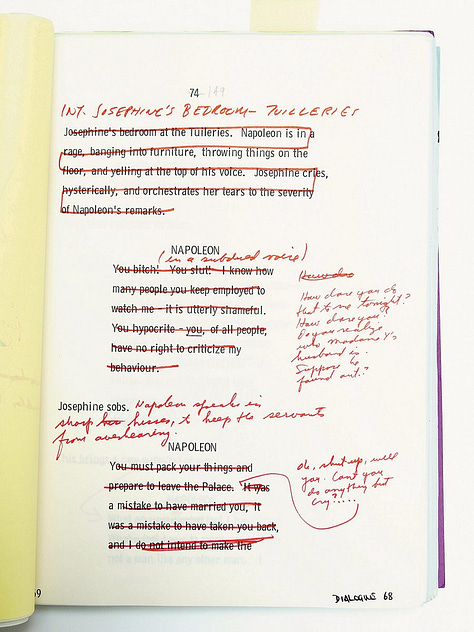 74
149
INT. JOSEPHINE'S BEDROOM – TUILLERIES
Josephine's bedroom at the Tuileries. Napoleon is in a
rage, banging into furniture, throwing things on the
floor, and yelling at the top of his voice. Josephine cries,
hysterically, and orchestrates her tears to the severity
of Napoleon's remarks.
NAPOLEON
(in a subdued voice)
You bitch! You slut! I know how
many people you keep employed to
watch me - it is utterly shameful.
You hypocrite - you, of all people,
have no right to criticize my
behaviour.
How do
How dare you do
that to me tonight?
How dare you?
Do you realize
who Madame
husband is.
Suppose he
found out?
Josephine sobs. Napoleon speaks in
sharp hisses, to keep the servants
from overhearing.
NAPOLEON
You must pack your things and
prepare to leave the Palace. It was
a mistake to have married you, it
was a mistake to have taken you back,
and I do not intend to make the
oh, shut up, will
you. Can't you
do anything but
cry?....
DIALOGUE 68